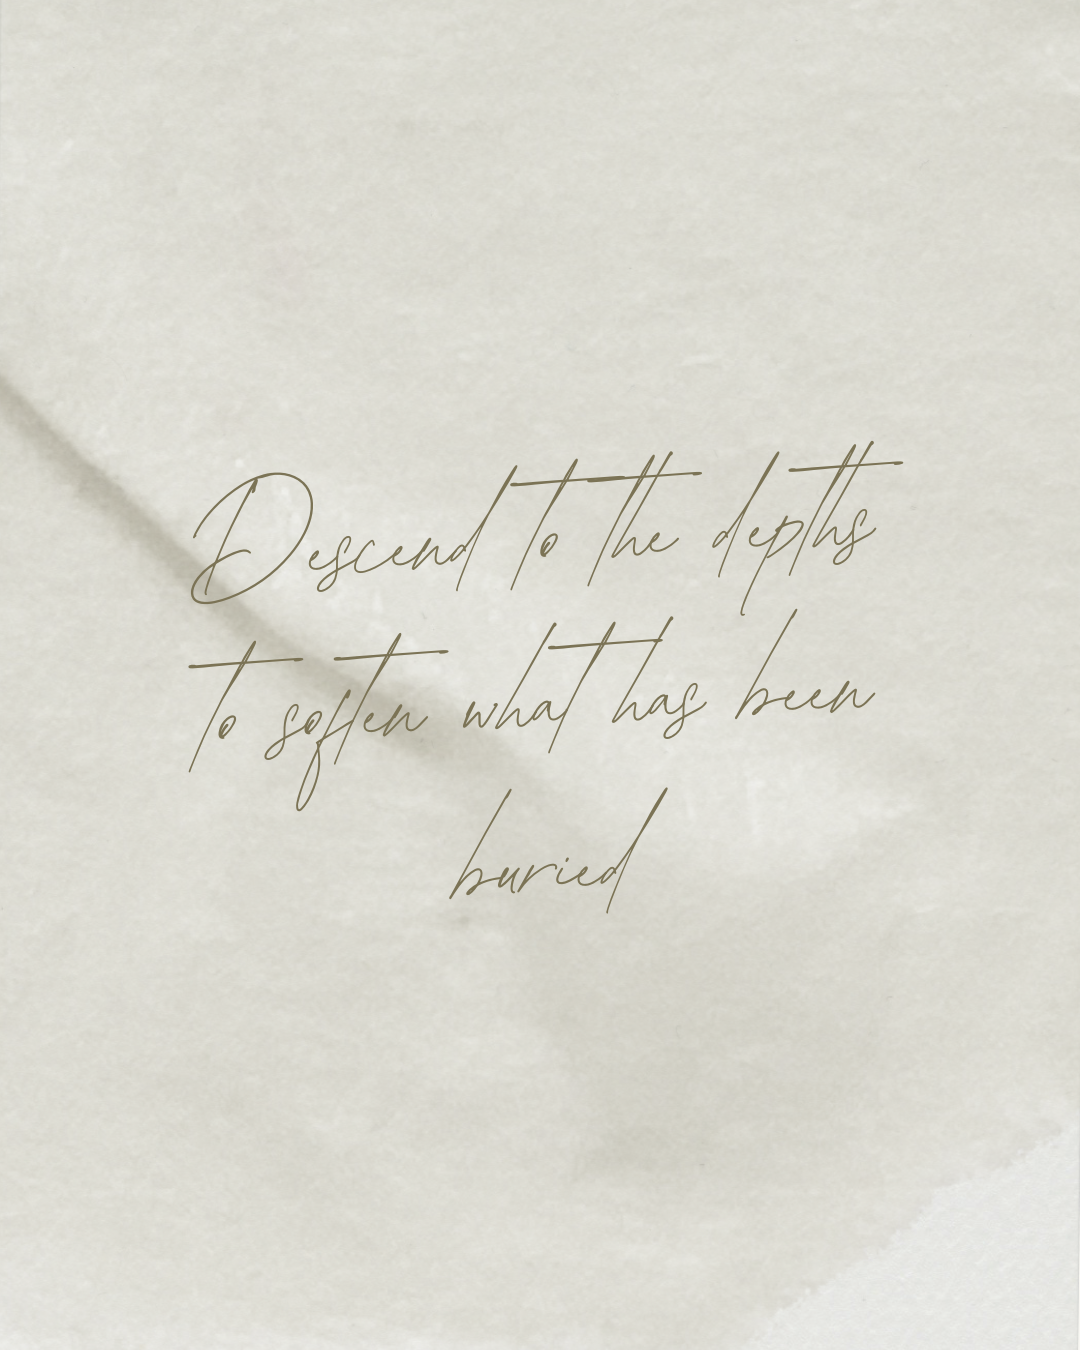 Descend to the depths
to soften what has been
buried